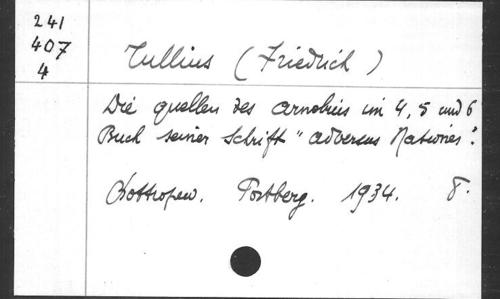 241
407
4
Tullius (Friedrich)
Die quellen des arnobius im 4, 5 und 6
Buch seiner Schrift "adversus Nationes".
Bottropew. Postberg. 1934. 8.